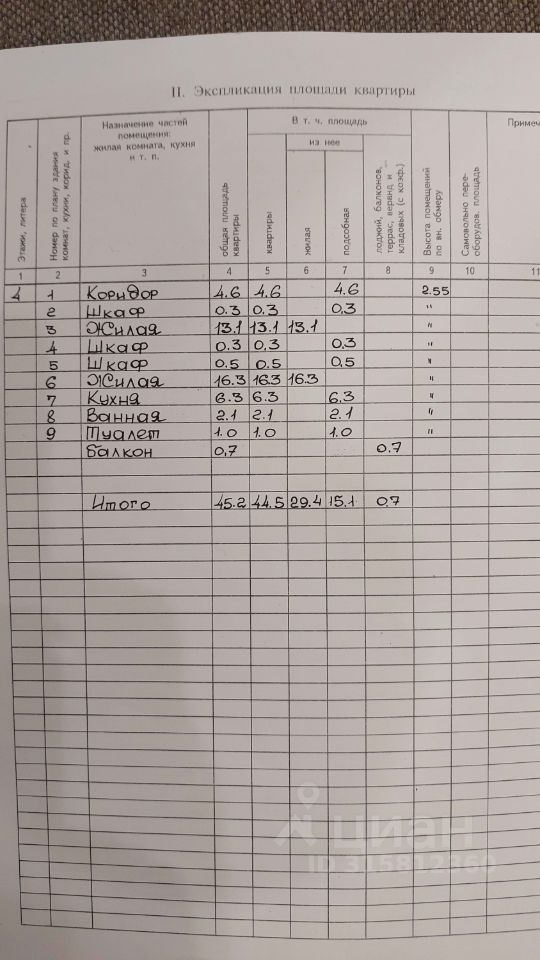 II. Экспликация площади квартиры
Этажи, литера
Номер по плану здания комнат, кухни, корид. и пр.
Назначение частей помещения: жилая комната, кухня и т. п.
общая площадь квартиры
В т. ч. площадь
квартиры
из нее
жилая
подсобная
лоджий, балконов, террас, веранд и кладовых (с коэф.)
Высота помещений по вн. обмеру
Самовольно пере- оборудов. площадь
Примеч
1 2 3 4 5 6 7 8 9 10 11
4 1 Коридор 4.6 4.6 4.6 2.55
2 Шкаф 0.3 0.3 0,3 "
3 Жилая 13.1 13.1 13.1 "
4 Шкаф 0.3 0,3 0.3 "
5 Шкаф 0.5 0.5 0,5 "
6 Жилая 16.3 16.3 16.3 "
7 Кухня 6.3 6.3 6.3 "
8 Ванная 2.1 2.1 2.1 "
9 Туалет 1.0 1.0 1.0 "
Балкон 0,7 0.7
Итого 45.2 44.5 29.4 15.1 0.7
циан
ID 315812360